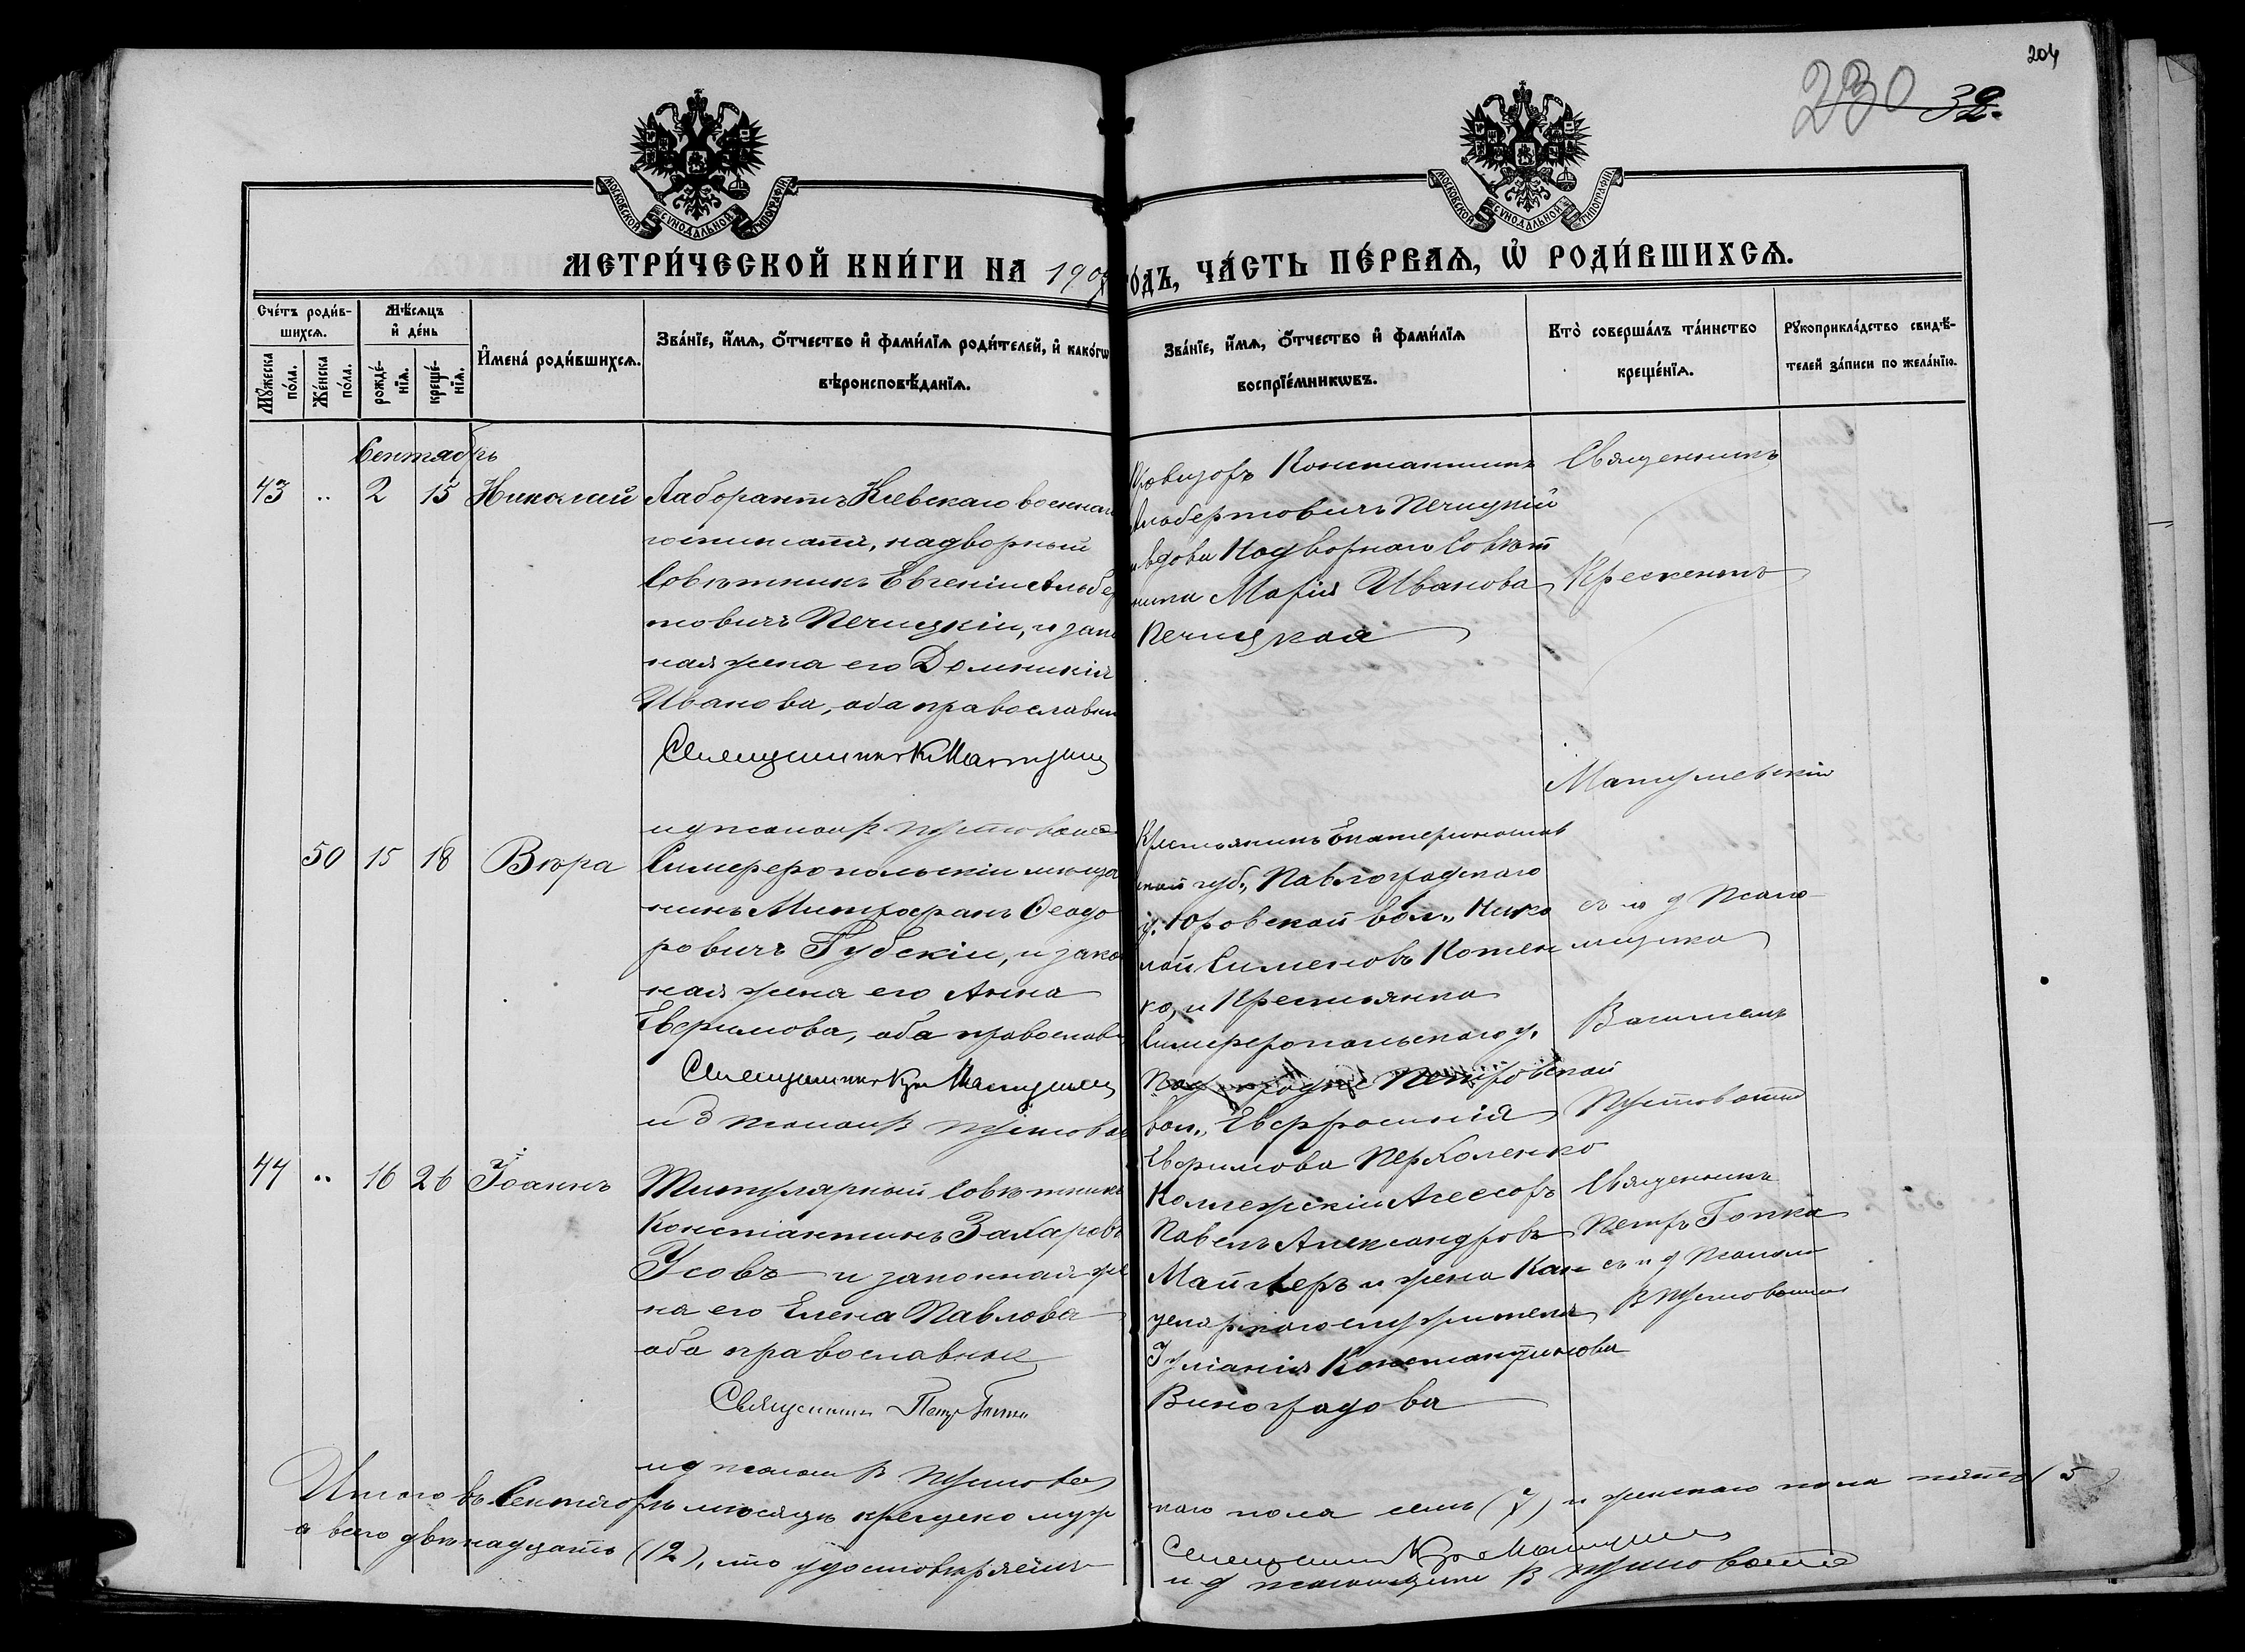 204
230 32.
МОСКОВСКОЙ СѴНОДАЛЬНОЙ ТИПОГРАФІИ
МОСКОВСКОЙ СѴНОДАЛЬНОЙ ТИПОГРАФІИ
МЕТРИ́ЧЕСКОЙ КНИ́ГИ НА 190
ОДЪ, ЧА́СТЬ ПЕ́РВАѦ, Ѡ҆ РОДИ́ВШИХСѦ.
Сче́тъ роди́в-
шихсѧ.
Мꙋ́жеска по́ла.
Же́нска по́ла.
Мѣ́сѧцъ
и҆ де́нь
рожде́-нїѧ.
креще́-нїѧ.
И҆мена̀ роди́вшихсѧ.
Зва́нїе, и҆́мѧ, ѻ҆́тчество и҆ фами́лїѧ роди́телей, и҆ како́гѡ
вѣроисповѣ́данїѧ.
Зва́нїе, и҆́мѧ, ѻ҆́тчество и҆ фами́лїѧ
воспрїе́мникѡвъ.
Кто̀ соверша́лъ та́инство
креще́нїѧ.
Рꙋкоприкла́дство свидѣ́-
телей за́писи по жела́нїю.
Сентябрь
43 " 2 15 Николай
Лаборантъ Кіевскаго военнаго
госпиталя, надворный
Совѣтникъ Евгеній Альбер
товичъ Печицкій, и закон
ная жена его Домникія
Иванова, оба православн
Священникъ Кр Матуше
и д псаломщ В Пустовой
Провизоръ Константинъ
Альбертовичъ Печицкій
и вдова Надворнаго Совѣт
ника Марія Иванова
Печицкая
Священникъ
Крескентъ
Матушевскій
50 15 18 Вѣра
Симферопольскій мѣща
нинъ Митрофанъ Ѳеодо
ровичъ Губскій, и закон
ная жена его Анна
Евфимова, оба православ
Священникъ Кр Матуше
и д псаломщ В Пустовой
Крестьянинъ Екатеринослав
ской губ., Павлоградскаго
у. Юрьевской вол., Нико
лай Сименовъ Котен
ко, и Крестьянка
Симферопольскаго у.
Петровской
вол., Евфросинія
Евфимова Перхоленко
съ и д Псало
мщика
Василіемъ
44 " 16 26 Іоаннъ
Титулярный Совѣтникъ
Константинъ Захаровъ
Усовъ и законная же
на его Елена Павлова
оба православные
Священникъ Петръ Гопка
и д псаломщ В
Коллежскій Ассесоръ
Павелъ Александровъ
Майгеръ и жена Кан
целярскаго служителя
Іуліанія Константинова
Виноградова
Священникъ
Петръ Гопка
съ и д Псалом
Итого въ Сентябрѣ мѣсяцѣ крещено муж
скаго пола семь (7) и женскаго пола пять (5)
а всего двѣнадцать (12), что удостовѣряемъ
Священникъ Кр Матуше
и д псаломщика В